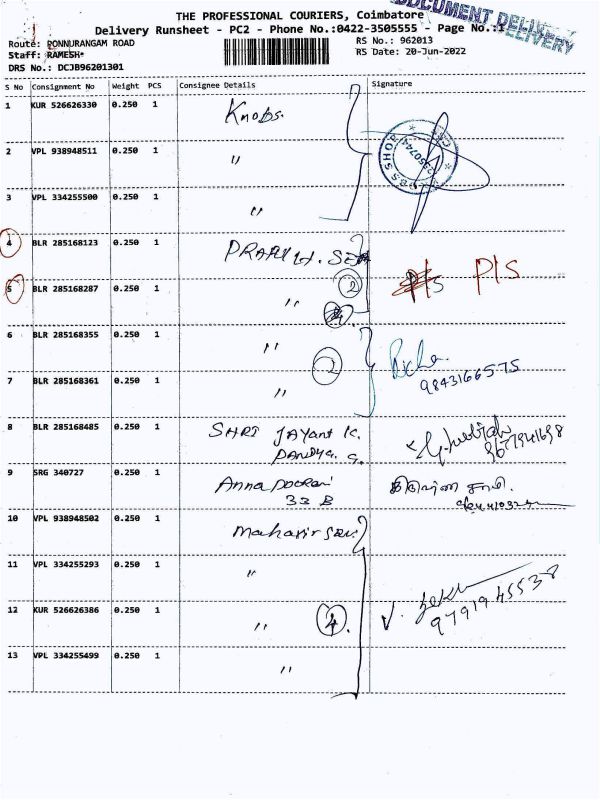 THE PROFESSIONAL COURIERS, Coimbatore
DOCUMENT DELIVERY
Delivery Runsheet - PC2 - Phone No.:0422-3505555 - Page No.:1
Route: PONNURANGAM ROAD
RS No.: 962013
Staff: RAMESH*
RS Date: 20-Jun-2022
DRS No.: DCJB96201301
S No Consignment No Weight PCS Consignee Details Signature
1 KUR 526626330 0.250 1 Knobs.
2 VPL 938948511 0.250 1 "
3 VPL 334255500 0.250 1 "
4 BLR 285168123 0.250 1
5 BLR 285168287 0.250 1 " 2 P/S P/S
6 BLR 285168355 0.250 1 "
7 BLR 285168361 0.250 1 " 2 9843166575
8 BLR 285168485 0.250 1 SHRI JAYANT K.
PANDYA. G. 9677941698
9 SRG 340727 0.250 1 Anna
33 B
10 VPL 938948502 0.250 1 Mahavir
11 VPL 334255293 0.250 1 "
12 KUR 526626386 0.250 1 " 4. 9791945538
13 VPL 334255499 0.250 1 "